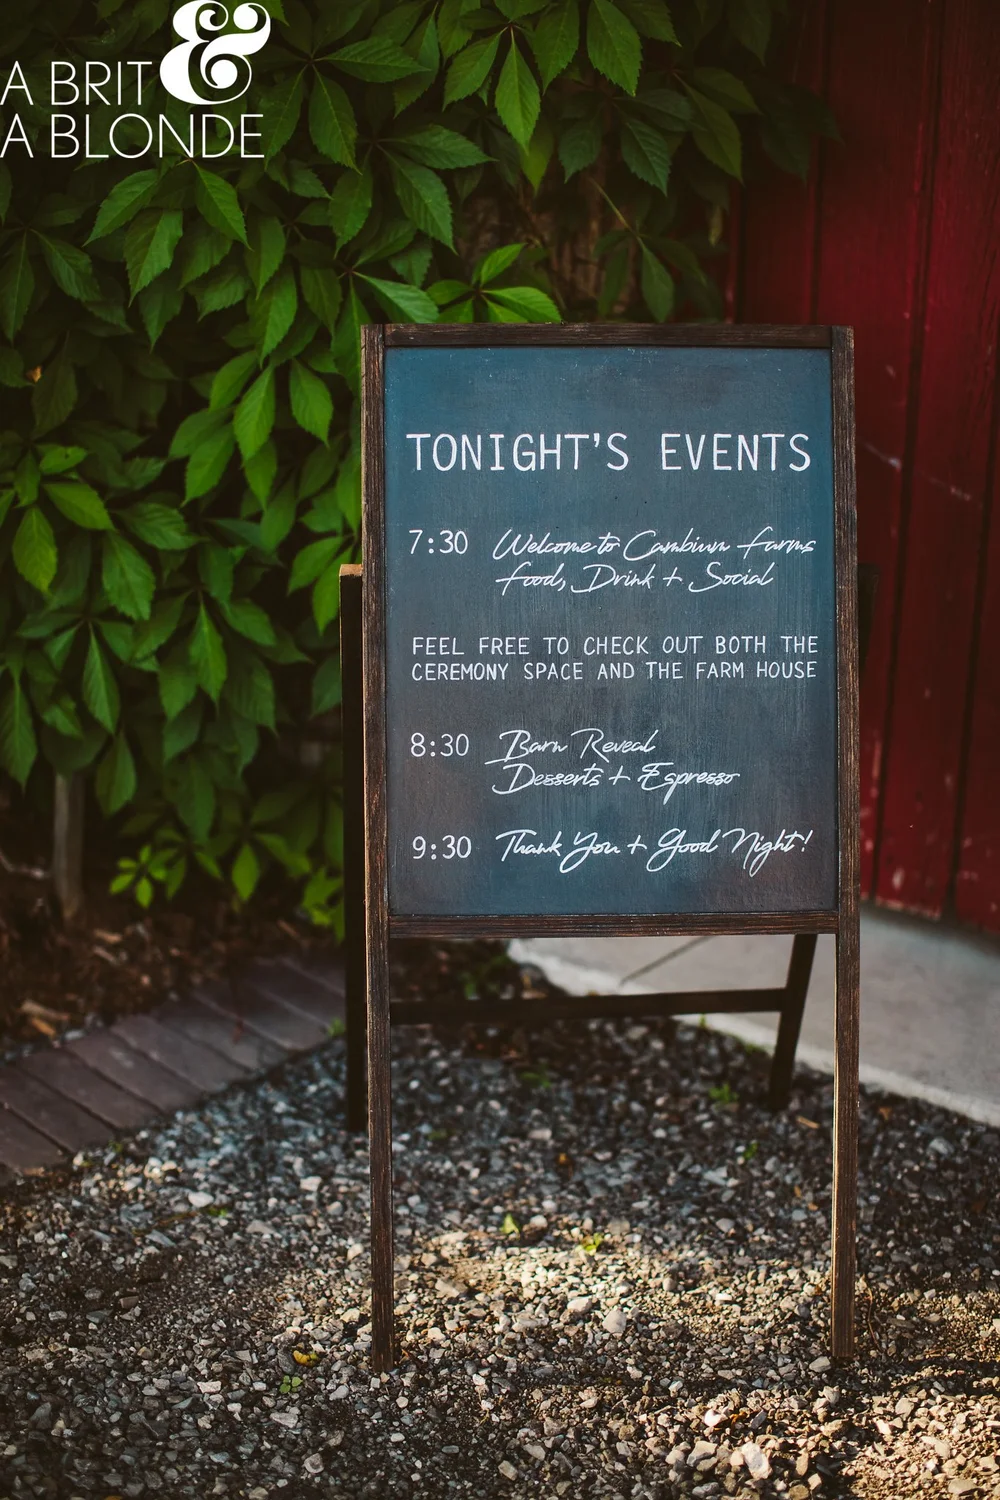 A BRIT &
A BLONDE
TONIGHT'S EVENTS
7:30 Welcome to Cambium Farms
Food, Drink + Social
FEEL FREE TO CHECK OUT BOTH THE
CEREMONY SPACE AND THE FARM HOUSE
8:30 Barn Reveal
Desserts + Espresso
9:30 Thank You + Good Night!